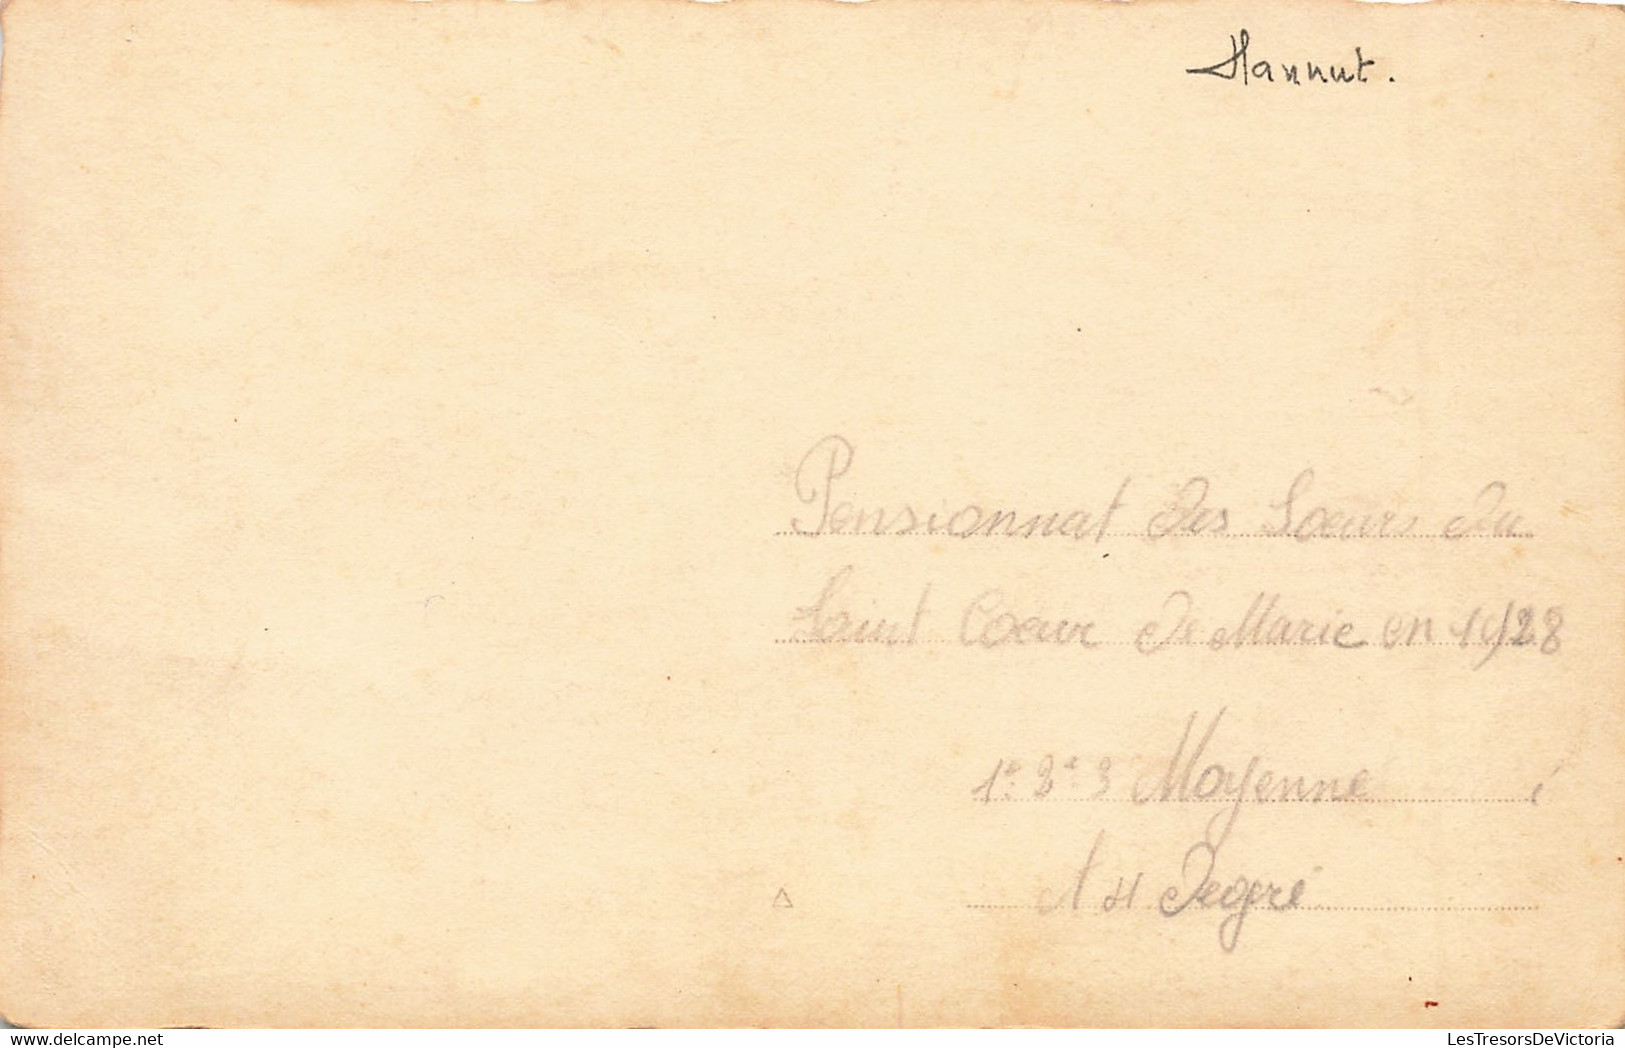 Hannut.
Pensionnat des Soeurs du
Saint Coeur de Marie en 1928
1e 2e 3 Moyenne
Degeré
delcampe.net
LesTresorsDeVictoria